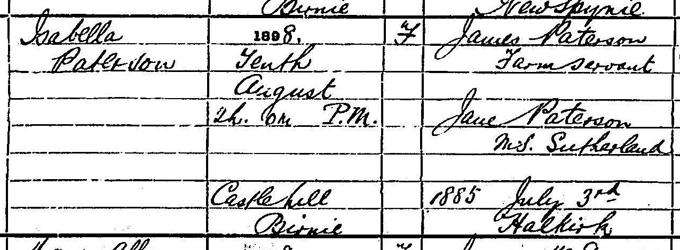 Birnie
New Spynie
Isabella
Paterson
1898,
Tenth
August
2h. 0m P.M.
Castlehill
Birnie
F
James Paterson
Farm servant
Jane Paterson
M.S. Sutherland
1885 July 3rd
Halkirk